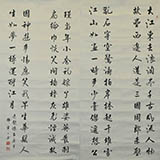 大江東去浪淘盡千古風流人
物故壘西邊人道是三國周郎赤壁亂
石穿空驚濤拍岸捲起千堆雪
江山如畫一時多少豪傑遙想公
瑾當年小喬初嫁了雄姿英發羽
扇綸巾談笑間檣櫓灰飛煙滅故
國神遊多情應笑我早生華髮人
生如夢一樽還酹江月